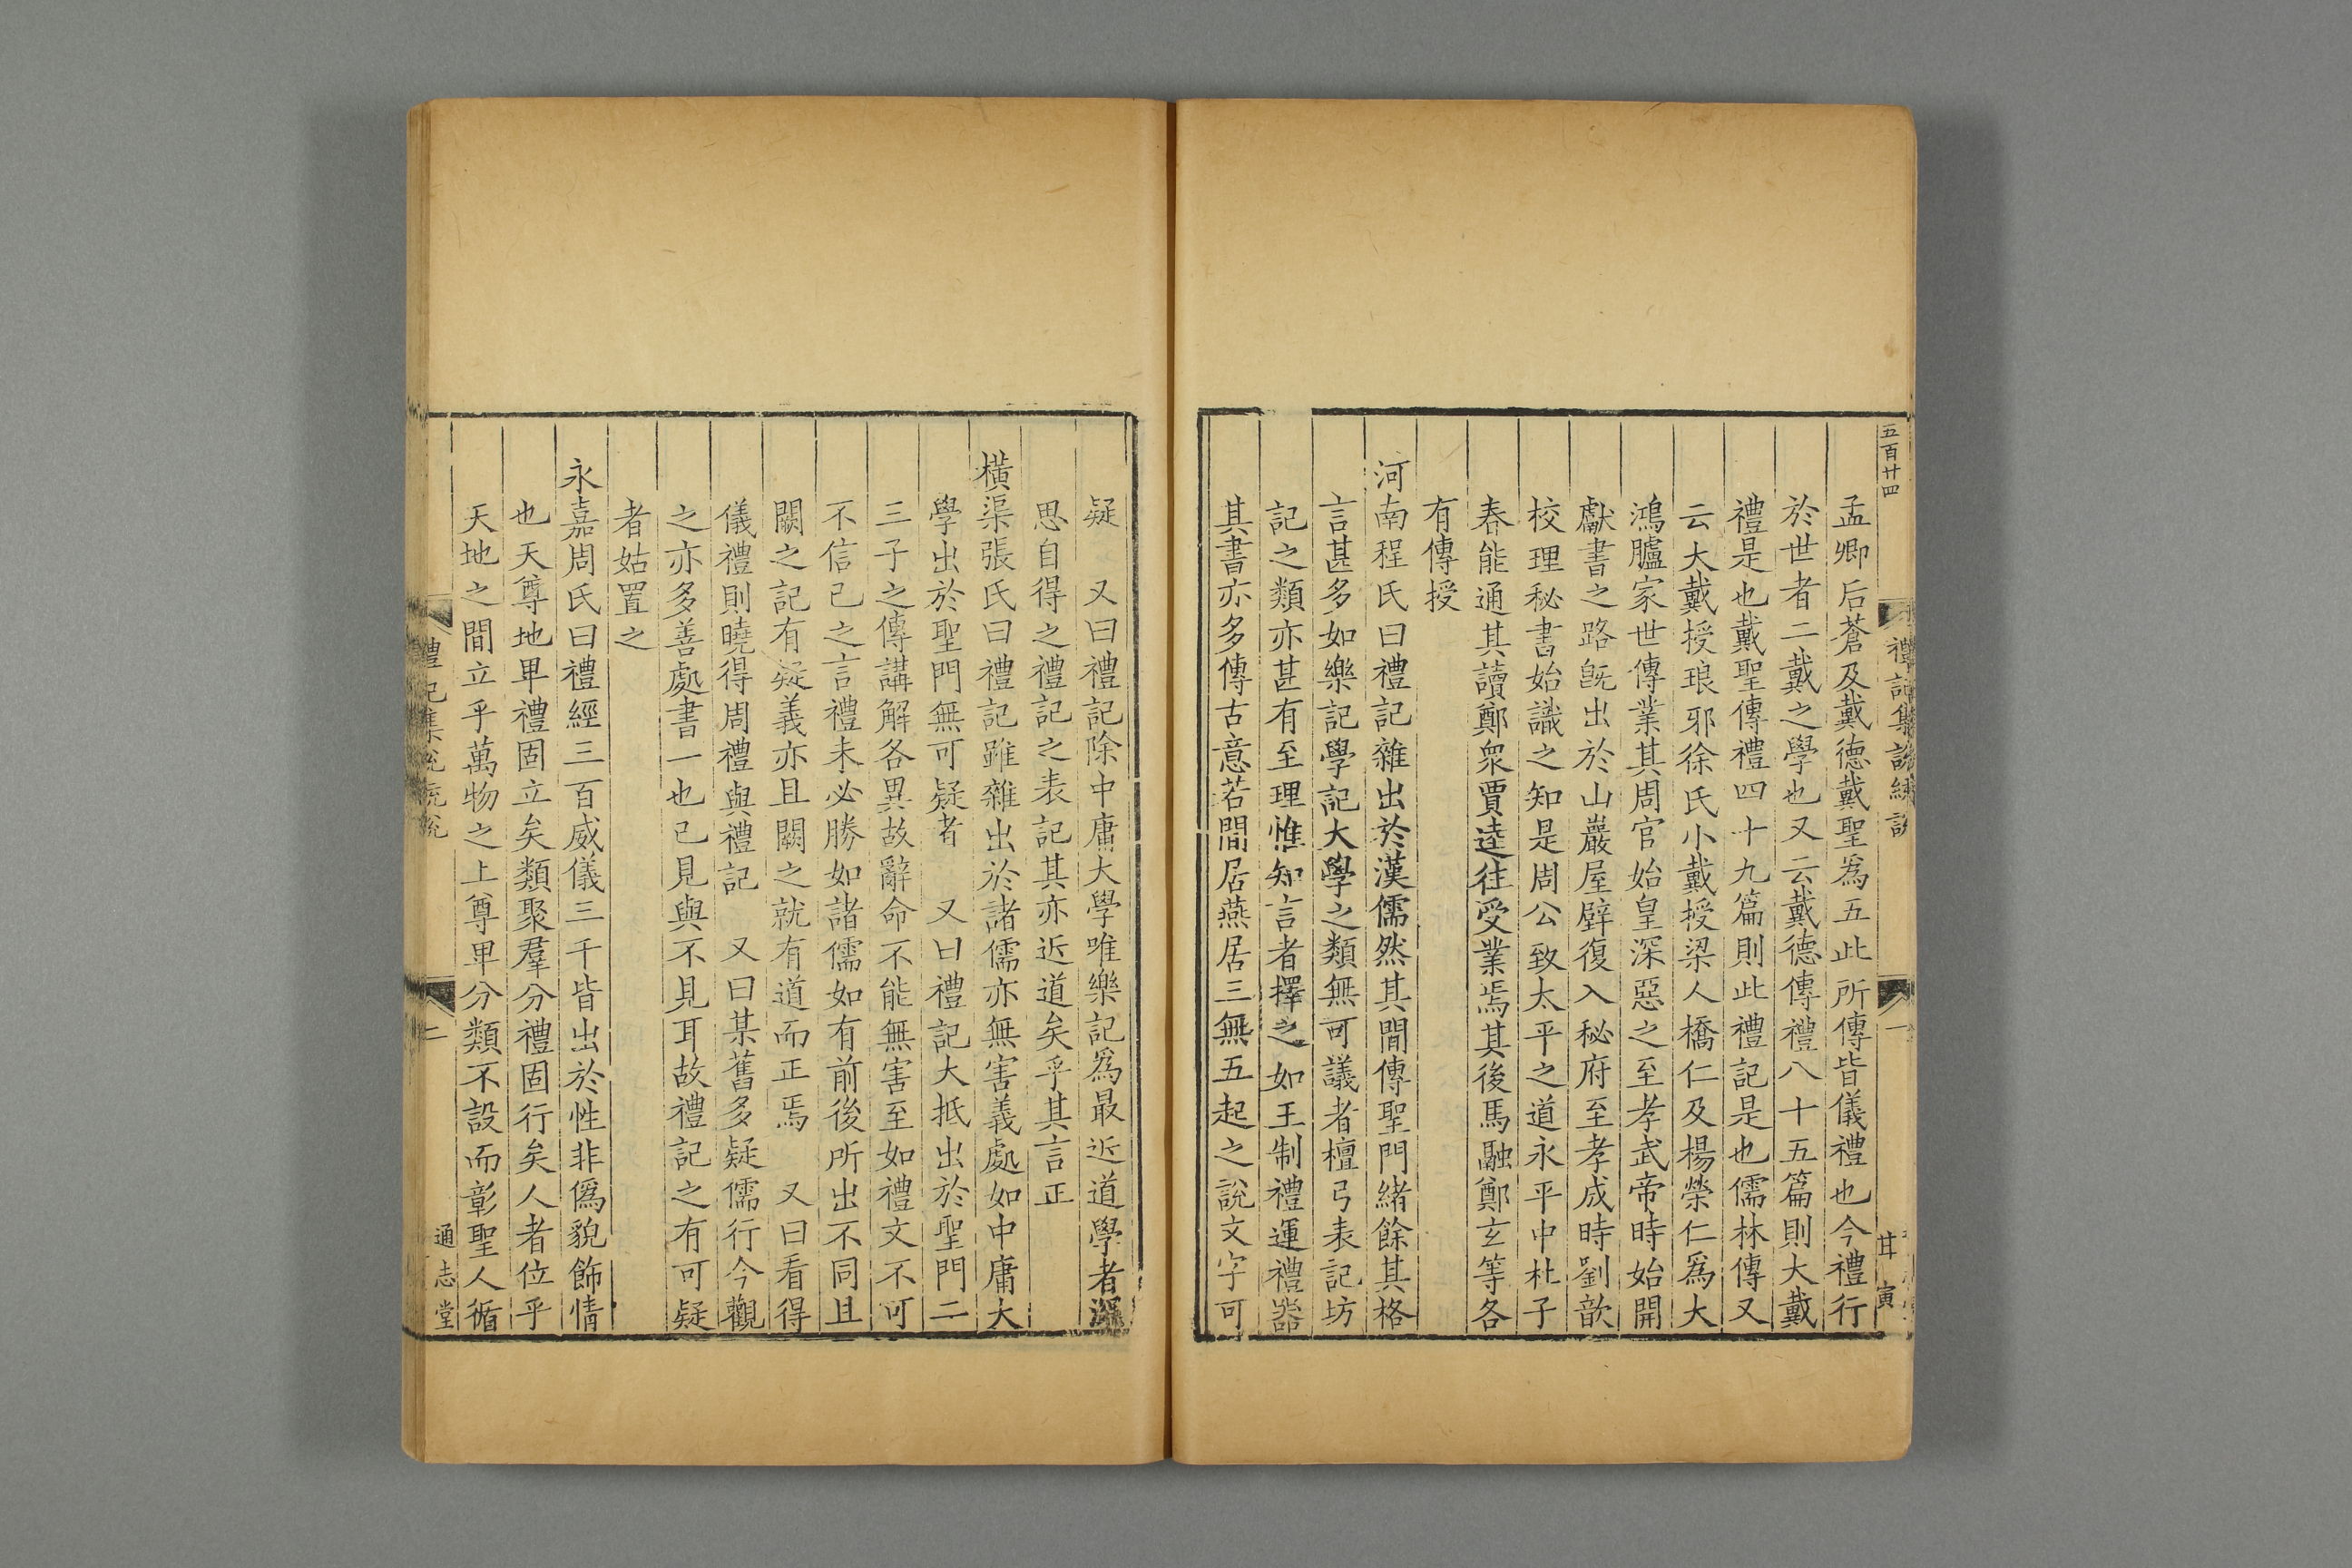 五百廿四
禮記集說綂說
一
甘寅
孟卿后蒼及戴德戴聖爲五此所傳皆儀禮也今禮行
於世者二戴之學也又云戴德傳禮八十五篇則大戴
禮是也戴聖傳禮四十九篇則此禮記是也儒林傳又
云大戴授琅邪徐氏小戴授梁人橋仁及楊榮仁爲大
鴻臚家世傳業其周官始皇深惡之至孝武帝時始開
獻書之路旣出於山巖屋壁復入秘府至孝成時劉歆
校理秘書始識之知是周公致太平之道永平中杜子
春能通其讀鄭衆賈逵往受業焉其後馬融鄭玄等各
有傳授
河南程氏曰禮記雜出於漢儒然其間傳聖門緒餘其格
言甚多如樂記學記大學之類無可議者檀弓表記坊
記之類亦甚有至理惟知言者擇之如王制禮運禮器
其書亦多傳古意若閒居燕居三無五起之說文字可
疑 又曰禮記除中庸大學唯樂記爲最近道學者深
思自得之禮記之表記其亦近道矣乎其言正
橫渠張氏曰禮記雖雜出於諸儒亦無害義處如中庸大
學出於聖門無可疑者 又曰禮記大抵出於聖門二
三子之傳講解各異故辭命不能無害至如禮文不可
不信己之言禮未必勝如諸儒如有前後所出不同且
闕之記有疑義亦且闕之就有道而正焉 又曰看得
儀禮則曉得周禮與禮記 又曰某舊多疑儒行今觀
之亦多善處書一也已見與不見耳故禮記之有可疑
者姑置之
永嘉周氏曰禮經三百威儀三千皆出於性非僞貌飾情
也天尊地卑禮固立矣類聚羣分禮固行矣人者位乎
天地之間立乎萬物之上尊卑分類不設而彰聖人循
禮記集說
二
通志堂